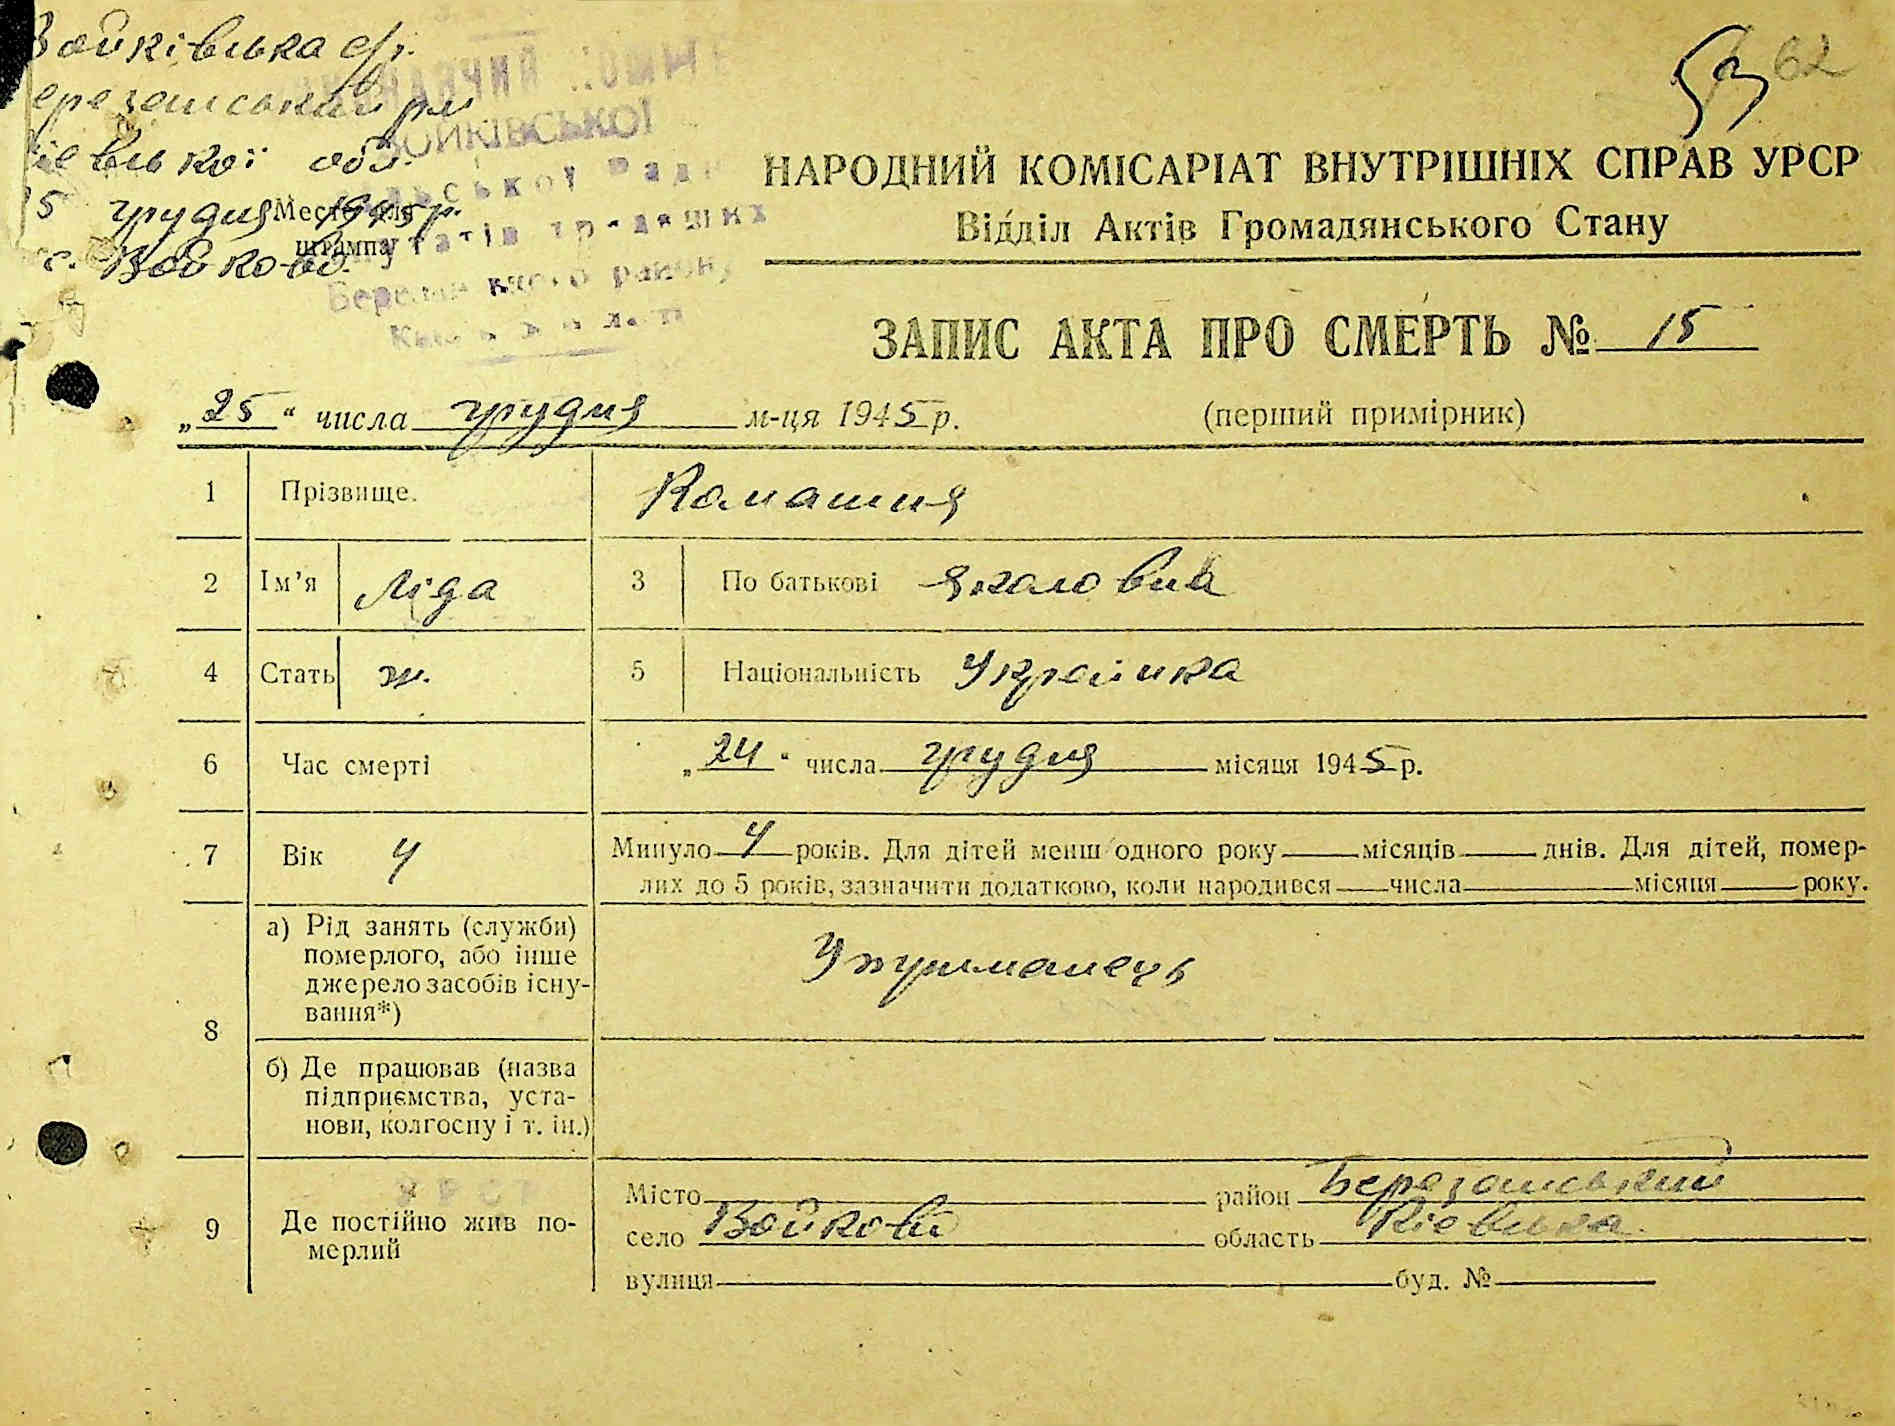 Войківська с/р.
Березанський р-н
Київської обл.
25 грудня 1945 р.
с. Войкове.
Место для
штампа
ВОЙКІВСЬКОЇ
62
НАРОДНИЙ КОМІСАРІАТ ВНУТРІШНІХ СПРАВ УРСР
Відділ Актів Громадянського Стану
ЗАПИС АКТА ПРО СМЕРТЬ № 15
„25“ числа грудня м-ця 1945 р.
(перший примірник)
1 Прізвище. Ромашня
2 Ім’я Ліда 3 По батькові
4 Стать ж. 5 Національність Українка
6 Час смерті „24“ числа грудня місяця 1945 р.
7 Вік 4 Минуло 4 років. Для дітей менш одного року місяців днів. Для дітей, помер-
лих до 5 років, зазначити додатково, коли народився числа місяця року.
8 а) Рід занять (служби)
померлого, або інше
джерело засобів існу-
вання*)
Утриманець
б) Де працював (назва
підприємства, уста-
нови, колгоспу і т. ін.)
9 Де постійно жив по-
мерлий
Місто район Березанський
село Войкові область Кієвська.
вулиця буд. №